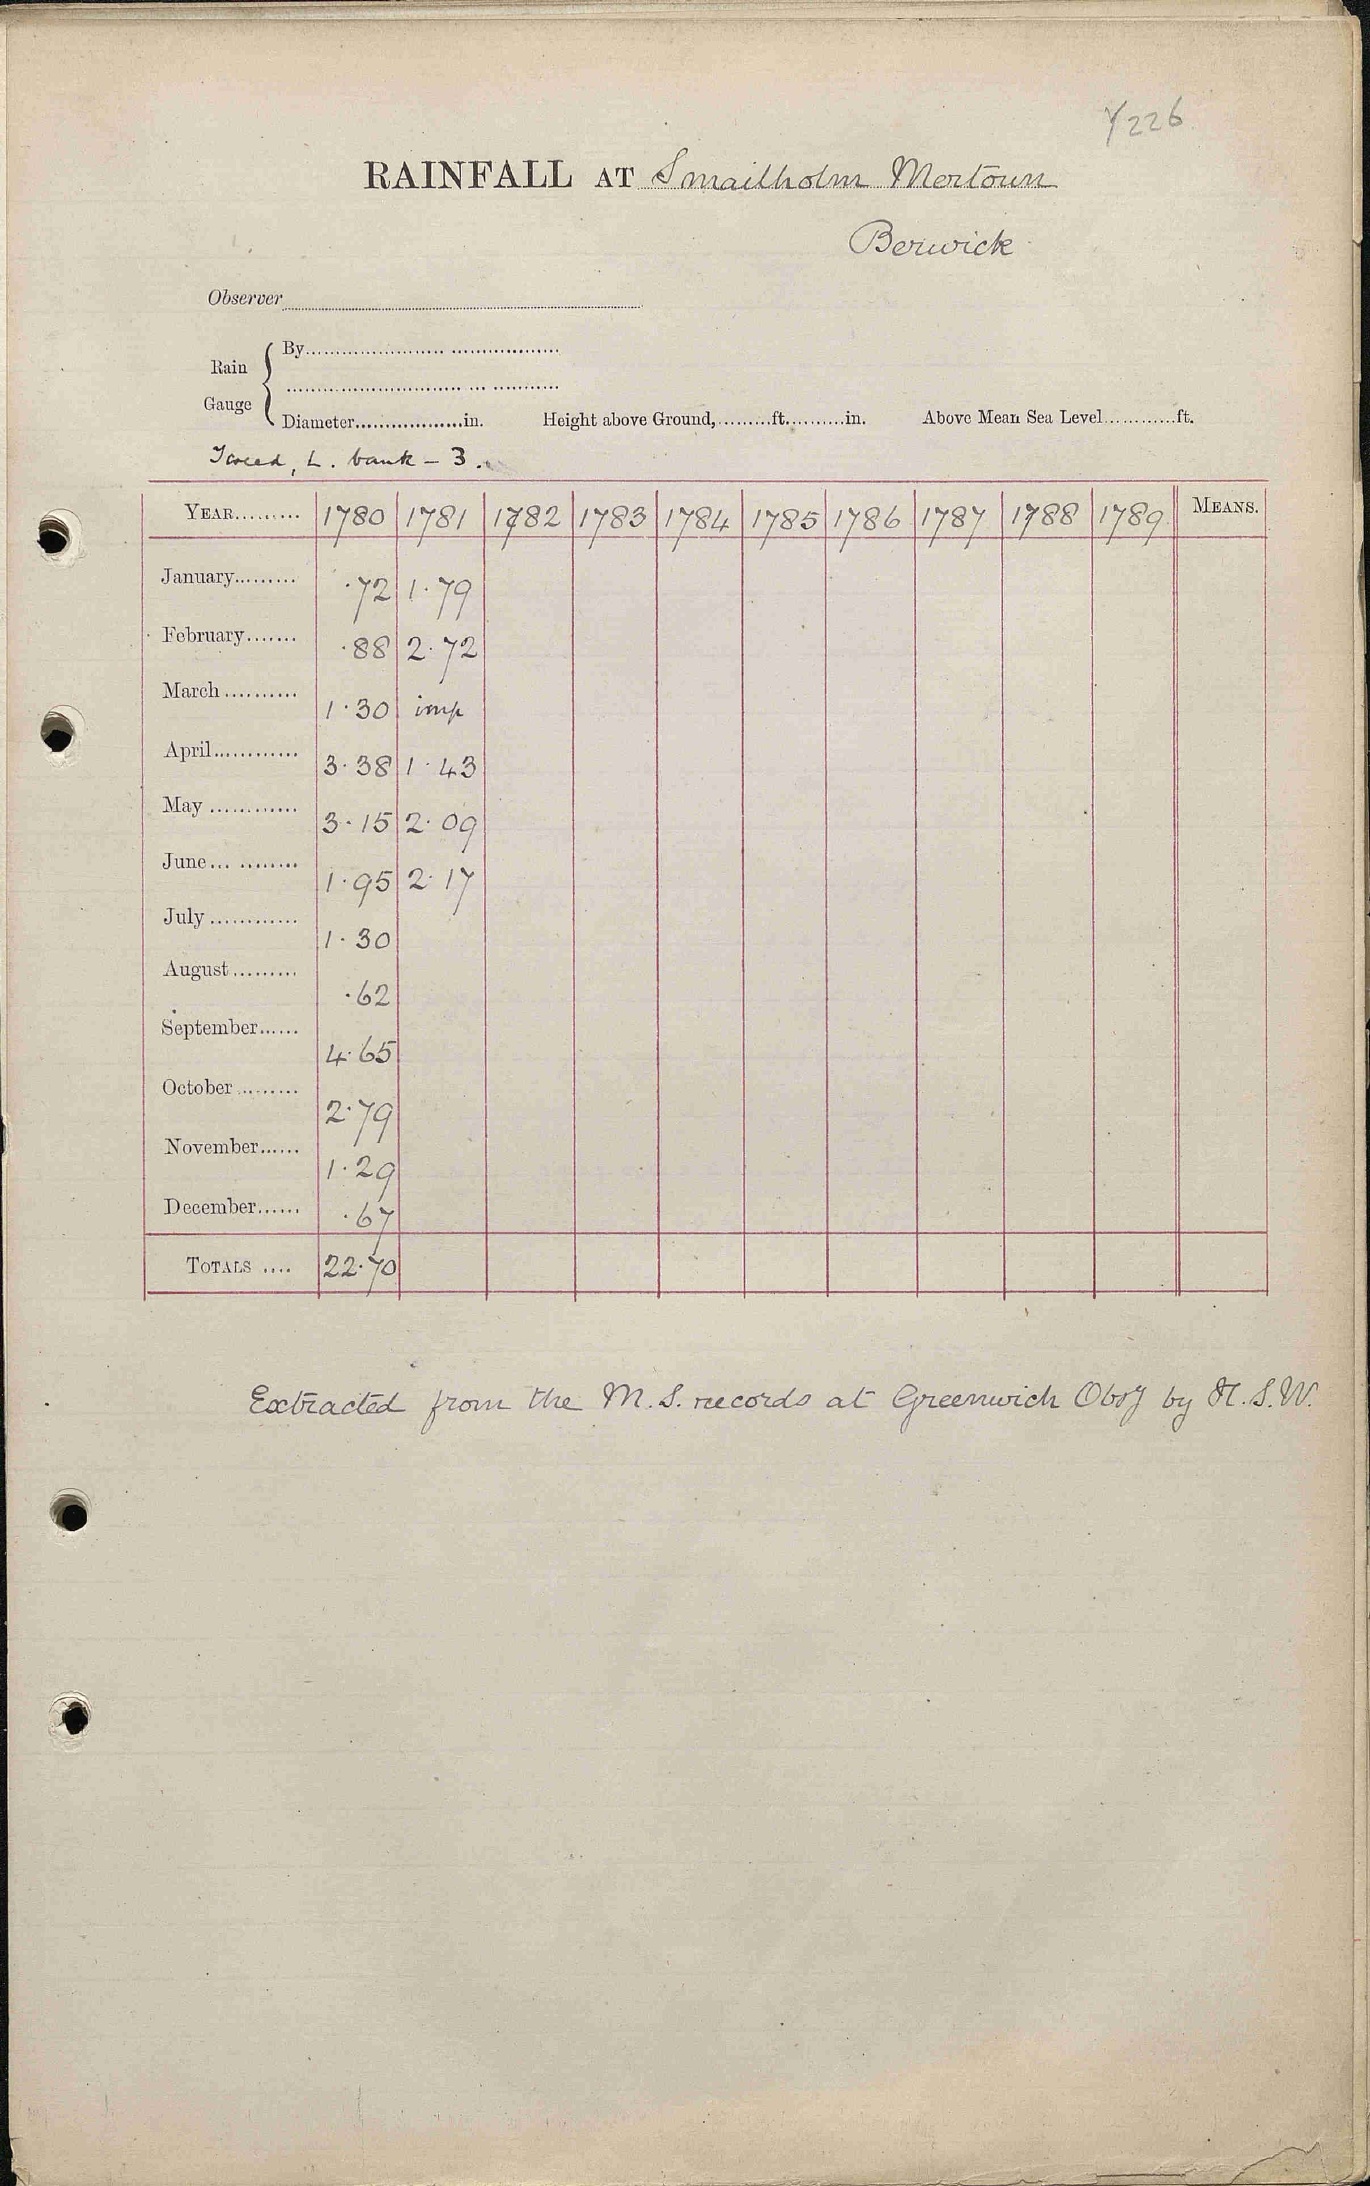 Y226
RAINFALL AT Smailholm Mertoun
Berwick
Observer
Rain Gauge { By
Diameter..................in. Height above Ground,.........ft..........in. Above Mean Sea Level............ft.
Tweed, L. bank – 3.
YEAR......... 1780 1781 1782 1783 1784 1785 1786 1787 1788 1789 MEANS.
January......... ·72 1·79
February....... ·88 2·72
March.......... 1·30 imp
April............ 3·38 1·43
May ............ 3·15 2·09
June... ........ 1·95 2·17
July ............ 1·30
August ......... ·62
September...... 4·65
October ......... 2·79
November...... 1·29
December...... ·67
TOTALS .... 22·70
Extracted from the M.S. records at Greenwich Obsy by H.S.W.